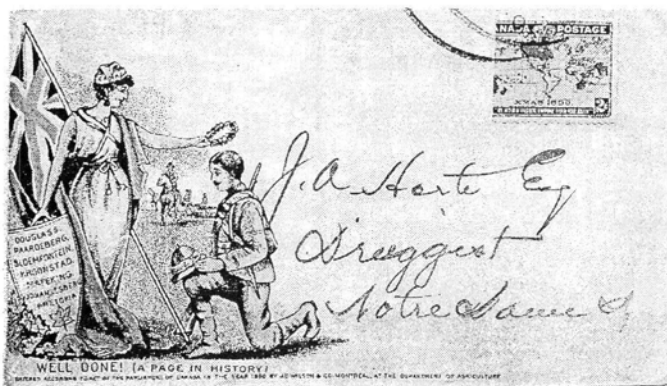 CANADA POSTAGE
XMAS 1898
J. A. Harte Esq
Druggist
Notre Dame St
DOUGLAS
PAARDEBERG,
BLOEMFONTEIN,
KROONSTAD,
MAFEKING,
JOHANNESBERG
PRETORIA
WELL DONE! (A PAGE IN HISTORY)
ENTERED ACCORDING TO ACT OF THE PARLIAMENT OF CANADA IN THE YEAR 1900 BY J.C. WILSON & CO. MONTREAL, AT THE DEPARTMENT OF AGRICULTURE